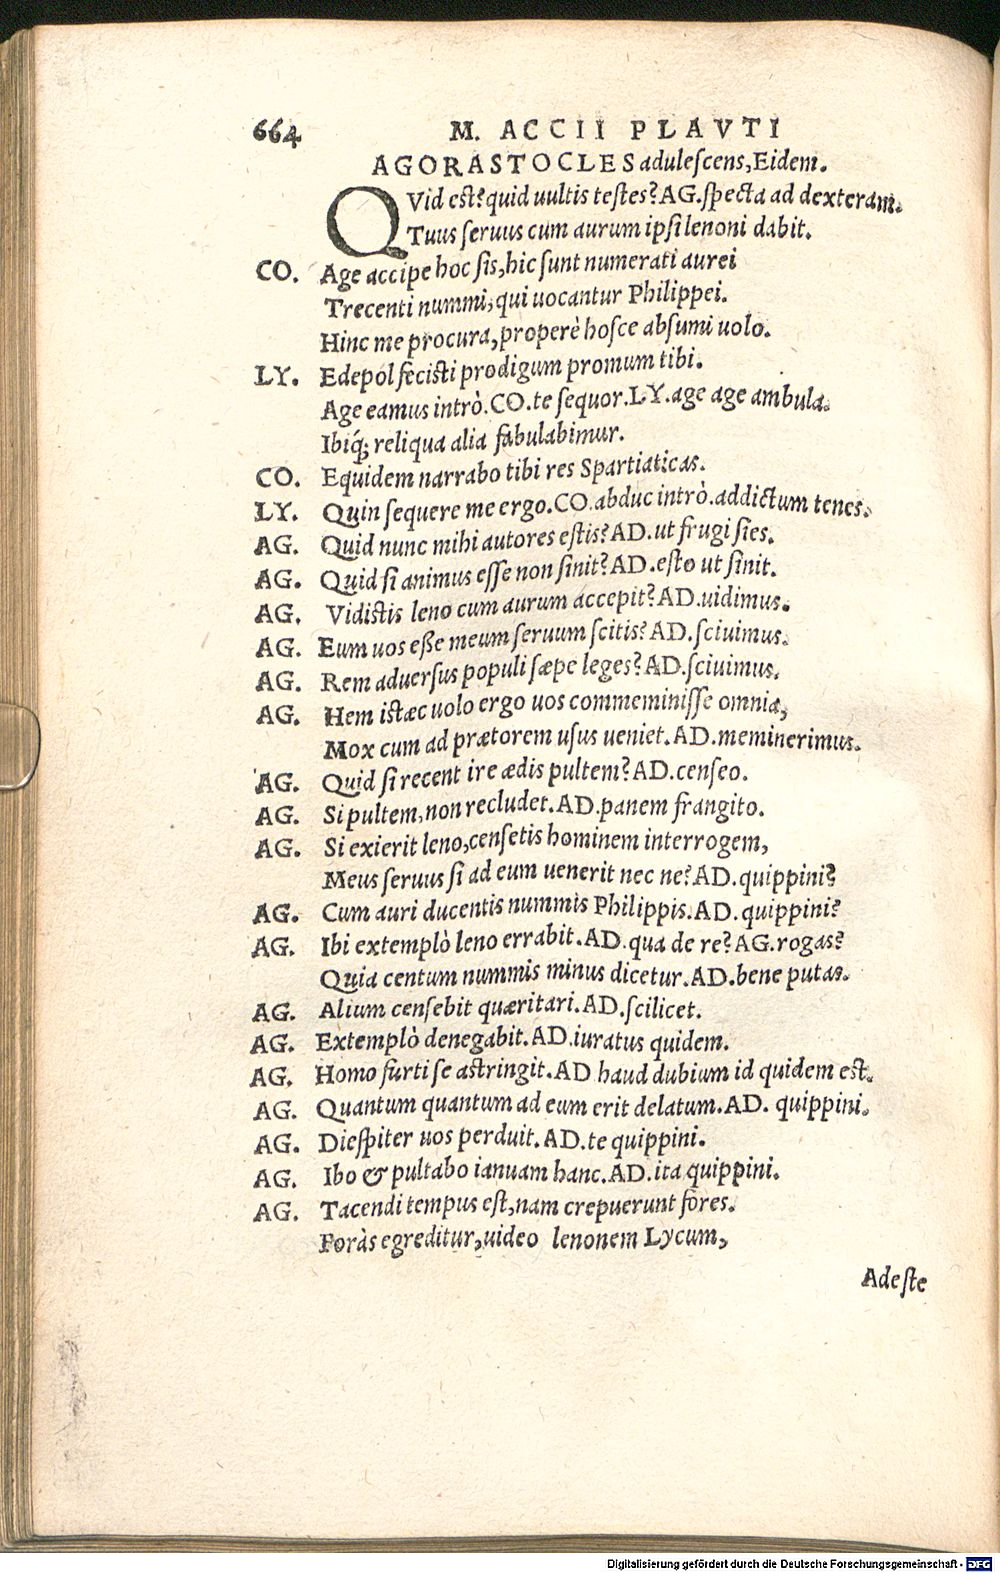 664 M. ACCII PLAVTI
AGORASTOCLES aduleſcens, Eidem.
QVid eſt? quid uultis teſtes? AG. ſpecta ad dexteram.
Tuus ſeruus cum aurum ipſi lenoni dabit.
CO. Age accipe hoc ſis, hic ſunt numerati aurei
Trecenti nummi, qui uocantur Philippei.
Hinc me procura, properè hoſce abſumi uolo.
LY. Edepol feciſti prodigum promum tibi.
Age eamus intrò. CO. te ſequor. LY. age age ambula.
Ibiq́; reliqua alia fabulabimur.
CO. Equidem narrabo tibi res Spartiaticas.
LY. Quin ſequere me ergo. CO. abduc intrò. addictum tenes.
AG. Quid nunc mihi autores eſtis? AD. ut frugi ſies.
AG. Quid ſi animus eſſe non ſinit? AD. eſto ut ſinit.
AG. Vidiſtis leno cum aurum accepit? AD. uidimus.
AG. Eum uos eße meum ſeruum ſcitis? AD. ſciuimus.
AG. Rem aduerſus populi ſæpe leges? AD. ſciuimus.
AG. Hem iſtæc uolo ergo uos commeminiſſe omnia,
Mox cum ad prætorem uſus ueniet. AD. meminerimus.
AG. Quid ſi recent ire ædis pultem? AD. cenſeo.
AG. Si pultem, non recludet. AD. panem frangito.
AG. Si exierit leno, cenſetis hominem interrogem,
Meus ſeruus ſi ad eum uenerit nec ne? AD. quippini?
AG. Cum auri ducentis nummis Philippis. AD. quippini?
AG. Ibi extemplò leno errabit. AD. qua de re? AG. rogas?
Quia centum nummis minus dicetur. AD. bene putas.
AG. Alium cenſebit quæritari. AD. ſcilicet.
AG. Extemplò denegabit. AD. iuratus quidem.
AG. Homo furti ſe aſtringit. AD haud dubium id quidem eſt.
AG. Quantum quantum ad eum erit delatum. AD. quippini.
AG. Dieſpiter uos perduit. AD. te quippini.
AG. Ibo & pultabo ianuam hanc. AD. ita quippini.
AG. Tacendi tempus eſt, nam crepuerunt fores.
Foràs egreditur, uideo lenonem Lycum,
Adeſte
Digitalisierung gefördert durch die Deutsche Forschungsgemeinschaft - DFG